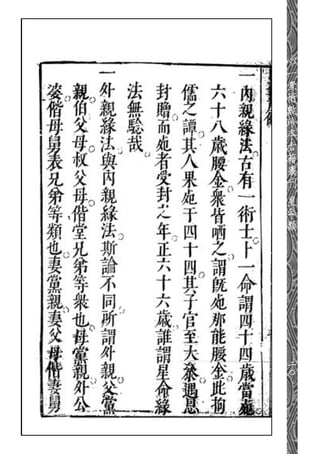 一內親緣法古有一術士卜一命謂四十四歲當
六十八歲腰金衆皆哂之謂旣
那能腰金此拘
儒之譚其人果
于四十四其子官至大
遇恩
封贈而
者受封之年正六十六歲誰謂星命緣
法無驗哉
一外親緣法與內親緣法斯論不同所謂外親父母
親伯父母叔父母偕堂兄弟等衆也母黨親外公
婆偕母舅表兄弟等類也妻黨親妻父母偕妻舅